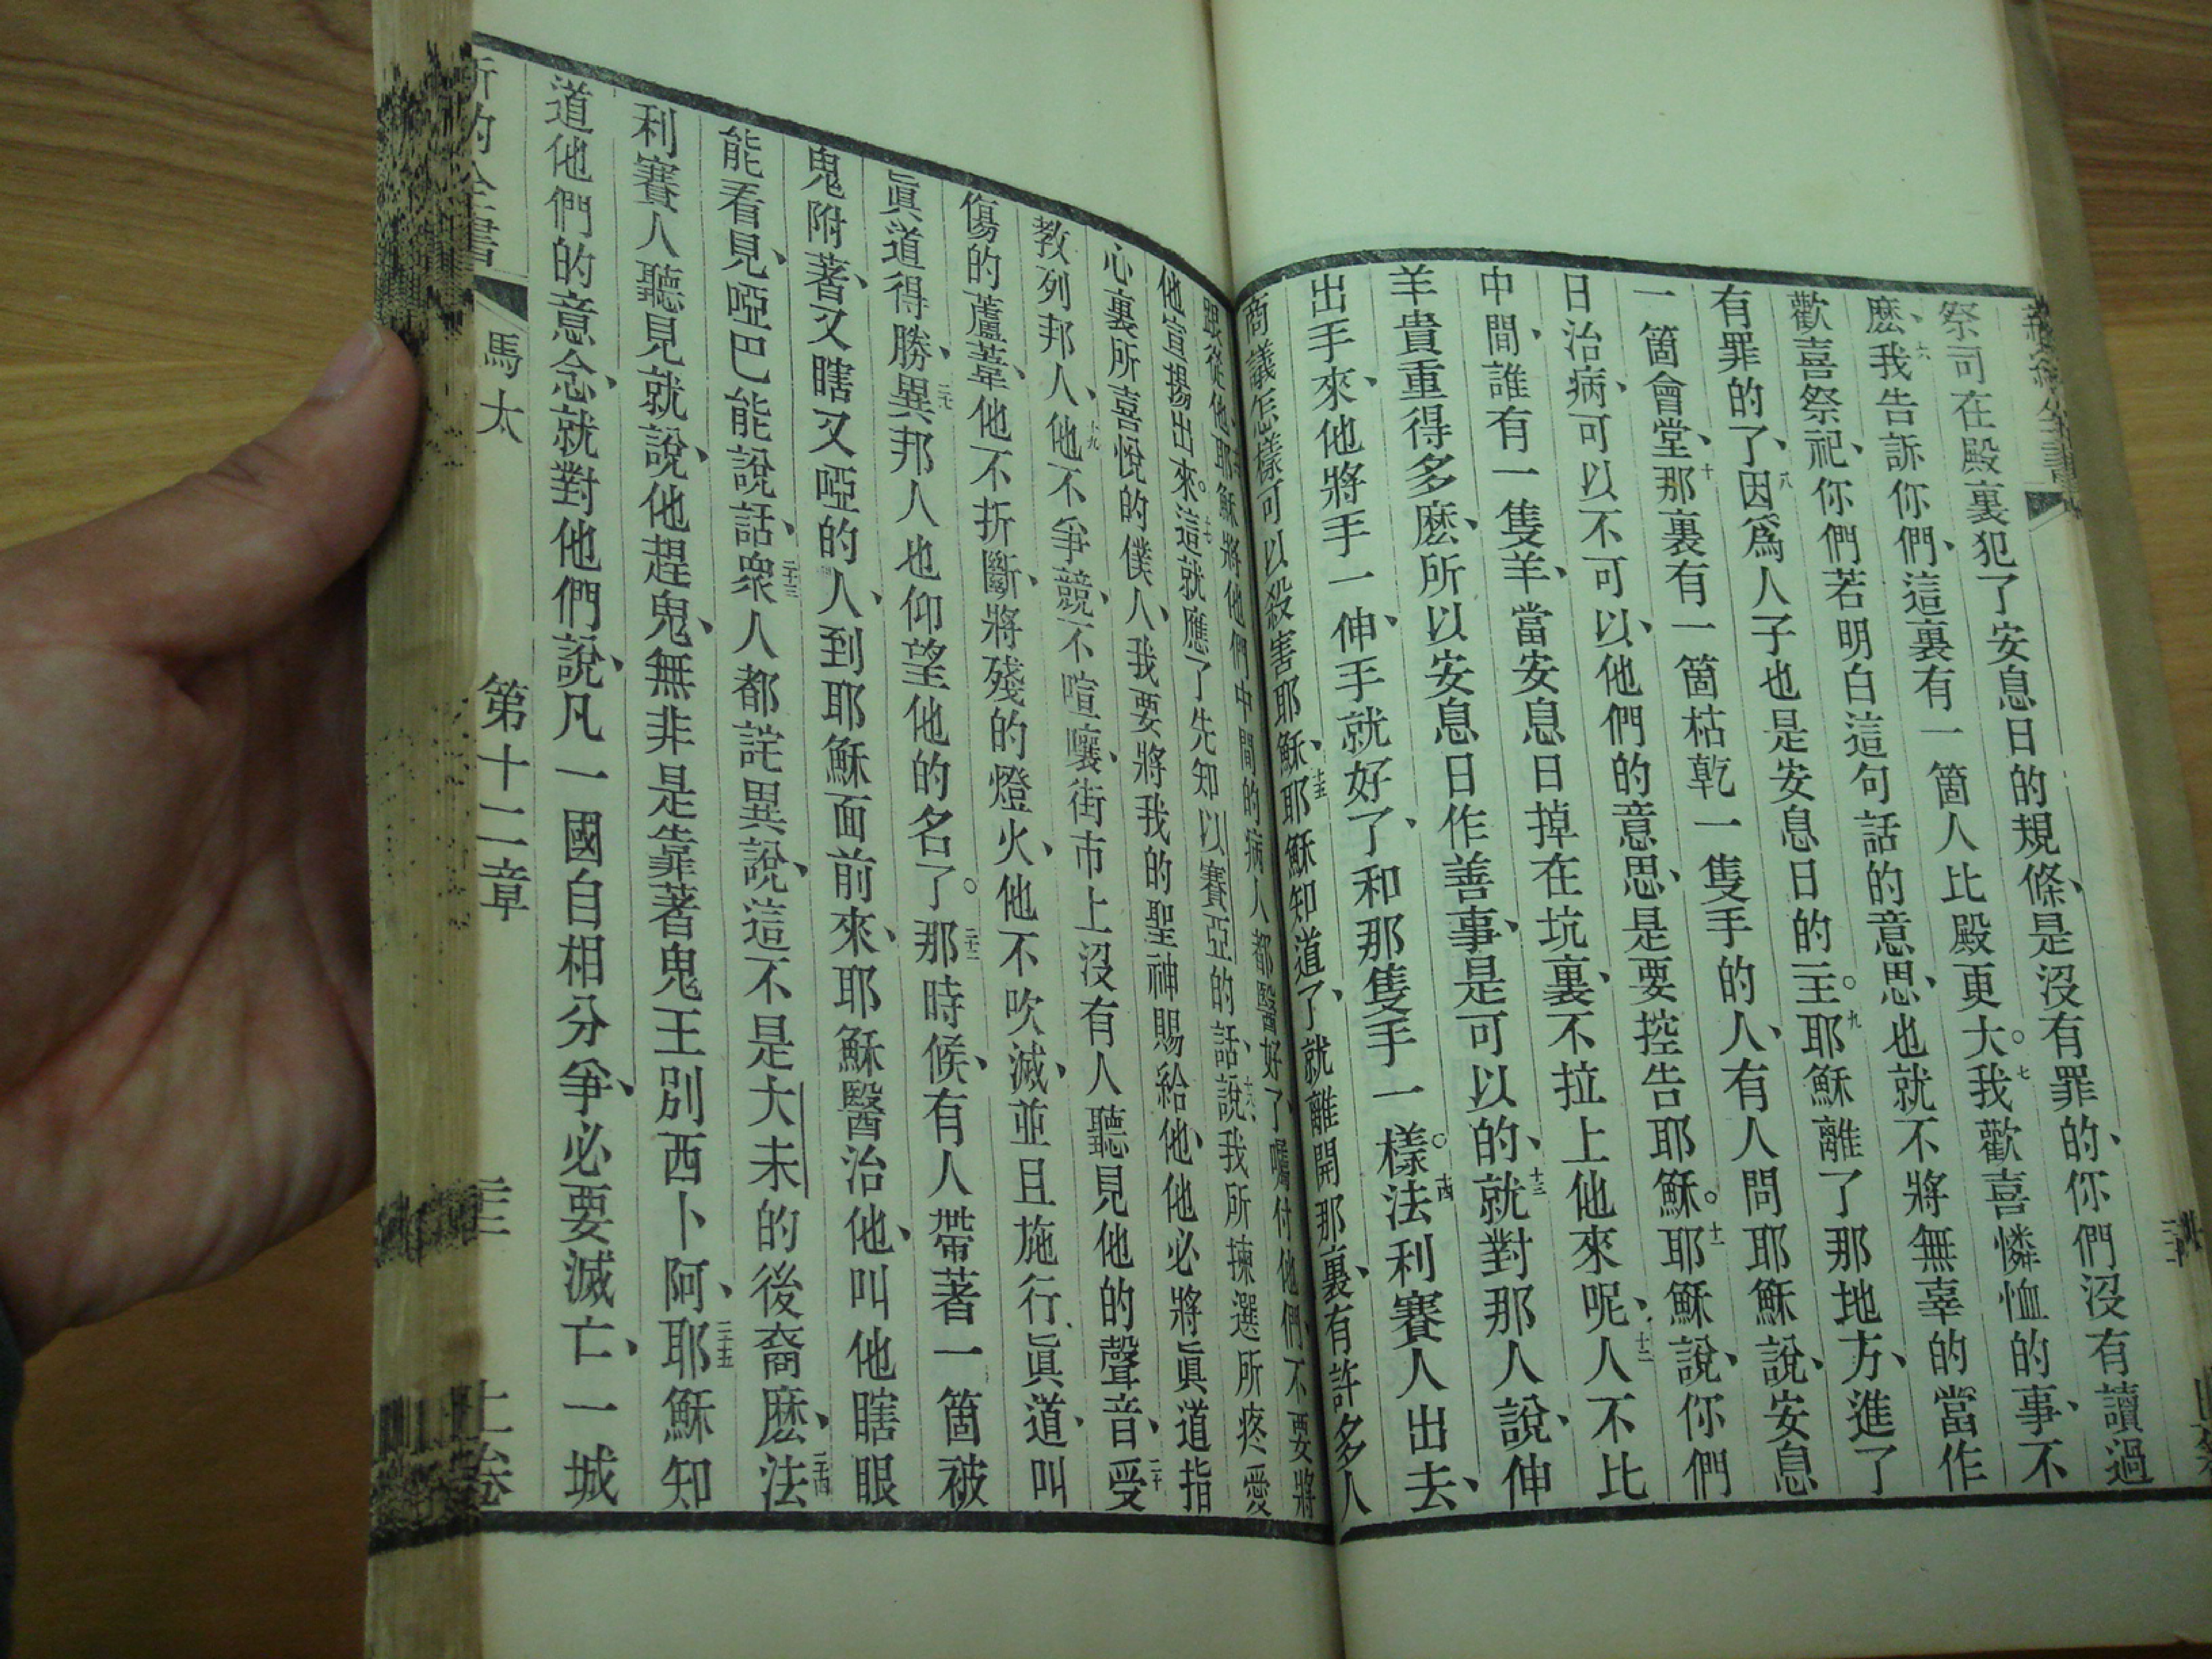 祭司在殿裏犯了安息日的規條、是沒有罪的、你們沒有讀過
麽、六我告訴你們、這裏有一箇人比殿更大。七我歡喜憐恤的事、不
歡喜祭祀、你們若明白這句話的意思、也就不將無辜的當作
有罪的了、八因爲人子也是安息日的主。九耶穌離了那地方、進了
一箇會堂、十那裏有一箇枯乾一隻手的人、有人問耶穌說、安息
日治病、可以不可以、他們的意思、是要控告耶穌。十一耶穌說、你們
中間、誰有一隻羊、當安息日掉在坑裏、不拉上他來呢、十二人不比
羊貴重得多麽、所以安息日作善事、是可以的、十三就對那人說、伸
出手來、他將手一伸、手就好了、和那隻手一樣。十四法利賽人出去、
商議怎樣可以殺害耶穌、十五耶穌知道了、就離開那裏、有許多人
跟從他、耶穌將他們中間的病人都醫好了、囑付他們、不要將
他宣揚出來。十七這就應了先知以賽亞的話、說、十八我所揀選所疼愛
心裏所喜悅的僕人、我要將我的聖神賜給他、他必將眞道指
教列邦人、十九他不爭競、不喧嚷、街市上沒有人聽見他的聲音、二十受
傷的蘆葦、他不折斷、將殘的燈火、他不吹滅、並且施行眞道、叫
眞道得勝、二十一異邦人也仰望他的名了。二十二那時候、有人帶著一箇被
鬼附著、又瞎又啞的人、到耶穌面前來、耶穌醫治他、叫他瞎眼
能看見、啞巴能說話、二十三衆人都詫異說、這不是大未的後裔麽、二十四法
利賽人聽見就說、他趕鬼、無非是靠著鬼王別西卜阿、二十五耶穌知
道他們的意念、就對他們說、凡一國自相分爭、必要滅亡、一城
新約全書 馬太 第十二章 三三 上卷